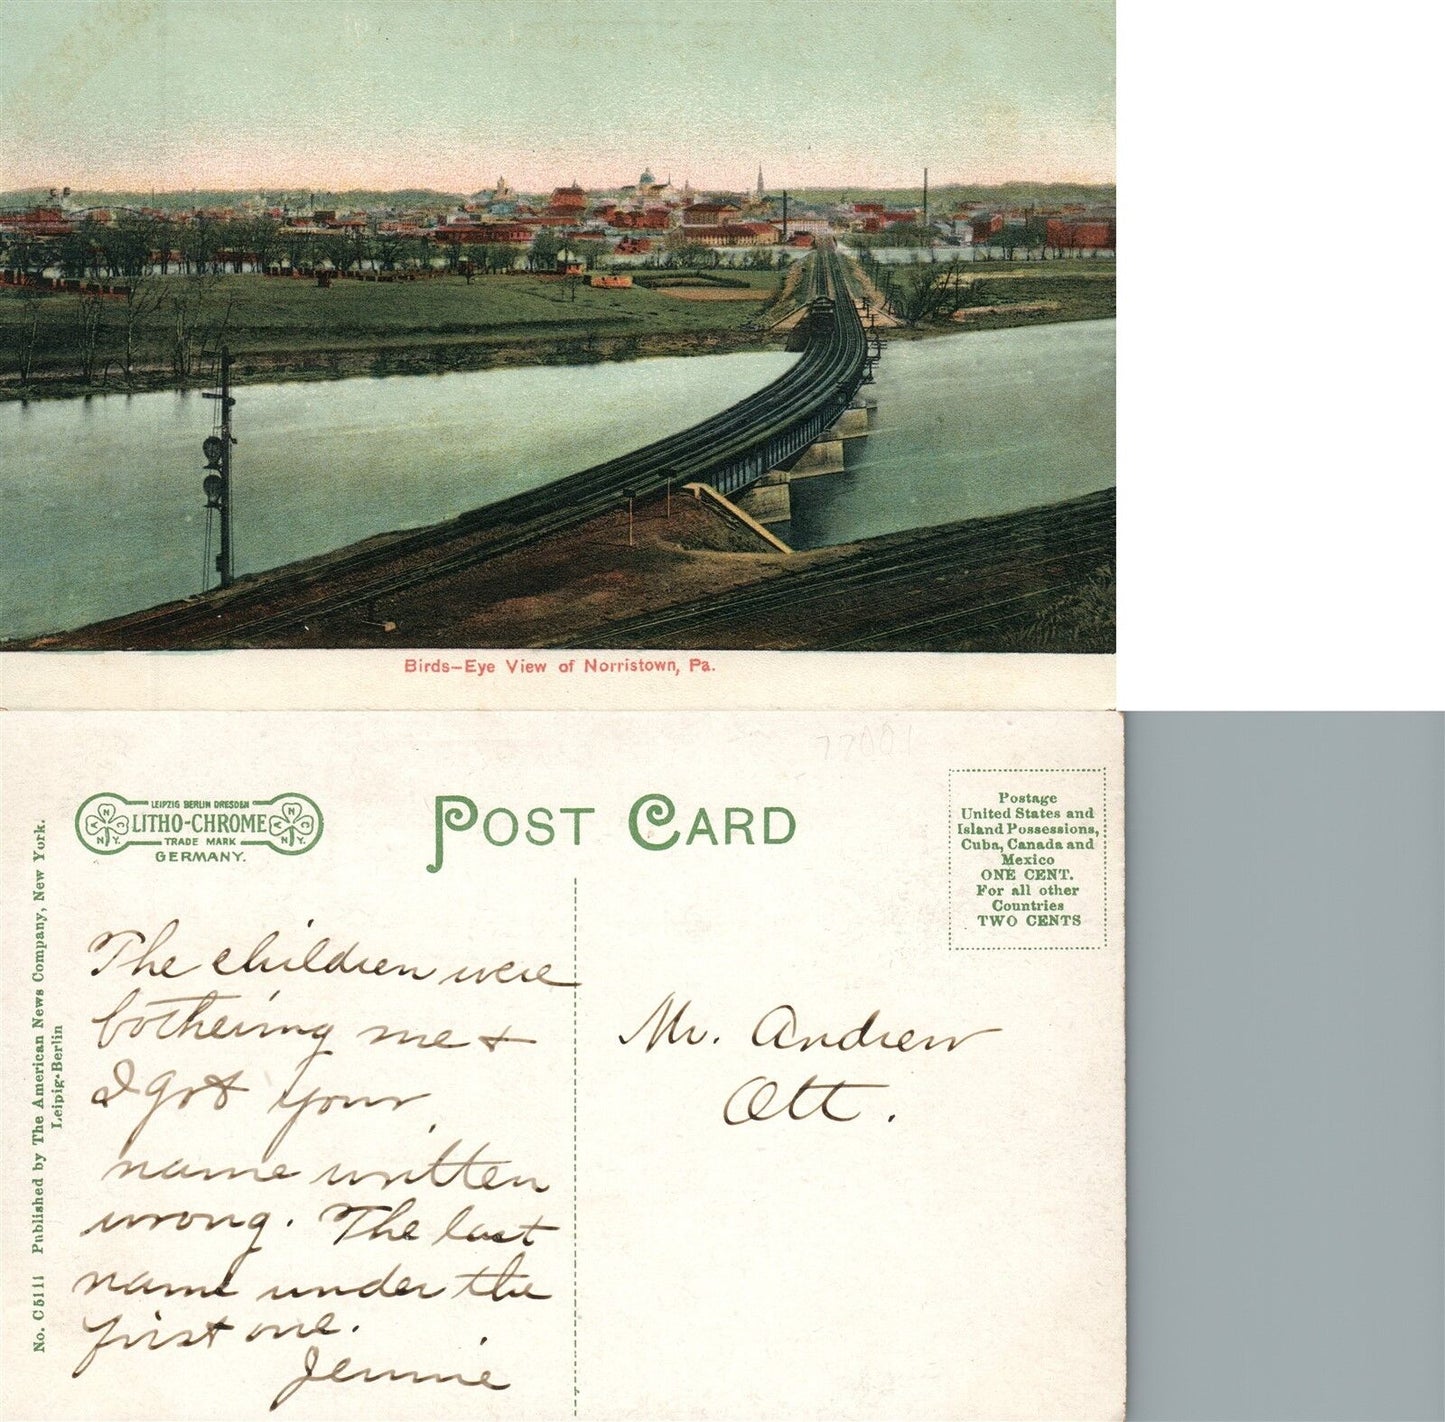 Birds-Eye View of Norristown, Pa.
77001
LEIPZIG BERLIN DRESDEN
LITHO-CHROME
TRADE MARK
GERMANY.
A N C
N.Y.
A N C
N.Y.
POST CARD
Postage
United States and
Island Possessions,
Cuba, Canada and
Mexico
ONE CENT.
For all other
Countries
TWO CENTS
No. C 5111 Published by The American News Company, New York.
Leipig-Berlin
The children were
bothering me +
I got your
name written
wrong. The last
name under the
first one.
Jennie
Mr. Andrew
Ott.